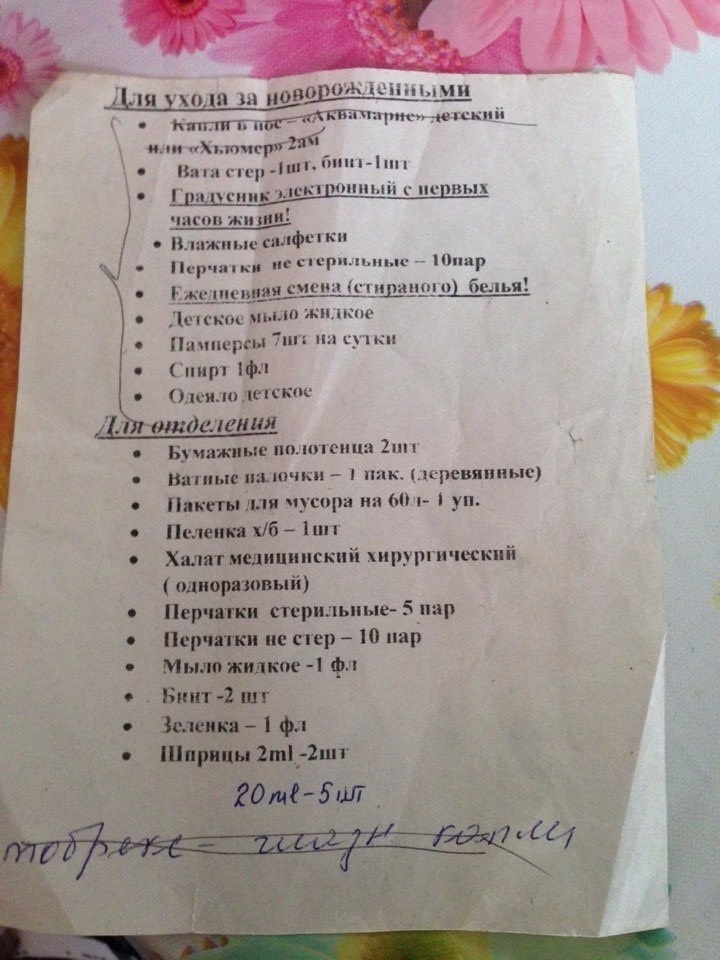 Для ухода за новорожденными
• Капли в нос – «Аквамарис» детский
или «Хьюмер» 2ам
• Вата стер -1шт, бинт-1шт
• Градусник электронный с первых
часов жизни!
• Влажные салфетки
• Перчатки не стерильные – 10пар
• Ежедневная смена (стираного) белья!
• Детское мыло жидкое
• Памперсы 7шт на сутки
• Спирт 1фл
• Одеяло детское
Для отделения
• Бумажные полотенца 2шт
• Ватные палочки – 1 пак. (деревянные)
• Пакеты для мусора на 60л- 1 уп.
• Пеленка х/б – 1шт
• Халат медицинский хирургический
( одноразовый)
• Перчатки стерильные- 5 пар
• Перчатки не стер – 10 пар
• Мыло жидкое -1 фл
• Бинт -2 шт
• Зеленка – 1 фл
• Шприцы 2ml -2шт
20ml-5шт
тобрекс - глазн капли